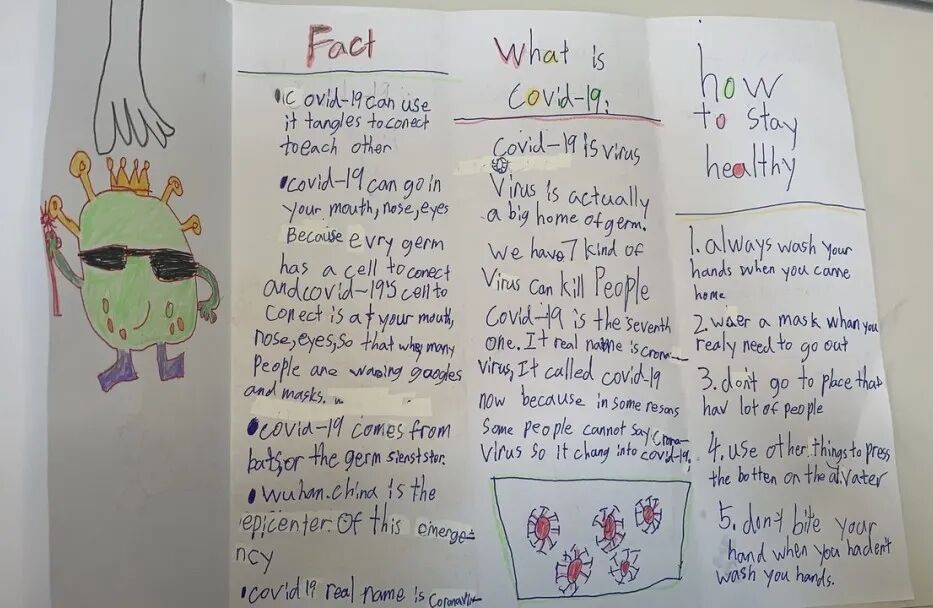 Fact
covid-19 can use
it tangles to conect
to each other
covid-19 can go in
your mouth, nose, eyes
Because evry germ
has a cell to conect
and covid-19's cell to
conect is at your mouth,
nose, eyes, so that why many
People are waring goggles
and masks.
covid-19 comes from
bats, or the germ sienststor.
wuhan. china is the
epicenter Of this emerge-
ncy
covid 19 real name is
What is
Covid-19:
Covid-19 is virus
Virus is actually
a big home of germ.
We have 7 kind of
Virus can kill People
Covid-19 is the seventh
one. It real name is crona-
virus, It called covid-19
now because in some resons
Some people cannot say crona-
Virus so it chang into covid-19.
how
to stay
healthy
1. always wash your
hands when you came
home
2. waer a mask whan you
realy need to go out
3. don't go to place that
hav lot of people
4. use other things to press
the botten on the
5. don't bite your
hand when you haden't
wash you hands.